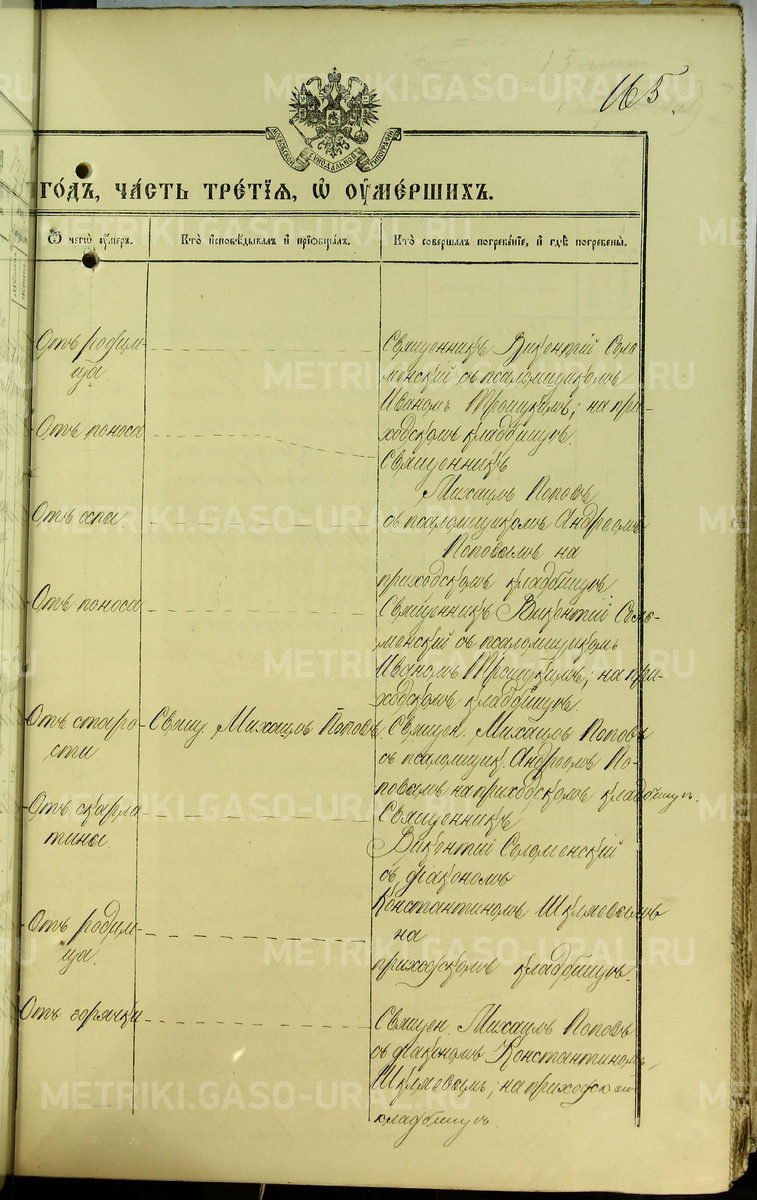 165.
МОСКОВСКОЙ СѴНОДАЛЬНОЙ ТИПОГРАФІИ
ГОДЪ, ЧАСТЬ ТРЕТІЯ, Ѡ ОУМЕРШИХЪ.
Ѿ чегѡ оумеръ.
Кто исповѣдывалъ и пріобщалъ.
Кто совершалъ погребеніе, и гдѣ погребены.
Отъ родим-
ца
Священникъ Викентій Соло-
менскій съ псаломщикомъ
Иваномъ Троицкимъ; на при-
ходскомъ кладбищѣ.
Отъ поноса
Священникъ
Михаилъ Поповъ
Отъ оспы.
съ псаломщикомъ Андреемъ
Поповымъ на
приходскомъ кладбищѣ.
Отъ поноса
Священникъ Викентій Соло-
менскій съ псаломщикомъ
Иваномъ Троицкимъ; на при-
ходскомъ кладбищѣ.
Отъ старо-
сти.
Свящ. Михаилъ Поповъ.
Священ. Михаилъ Поповъ
съ псаломщик. Андреемъ По-
повымъ на приходскомъ кладбищѣ.
Отъ скарла-
тины.
Священникъ
Викентій Соломенскій
съ діакономъ
Константиномъ Шкляевымъ
Отъ родим-
ца.
на
приходскомъ кладбищѣ.
Отъ горячки
Священ. Михаилъ Поповъ
съ діакономъ Константиномъ
Шкляевымъ, на приходском
кладбищѣ.
METRIKI.GASO-URAL.RU